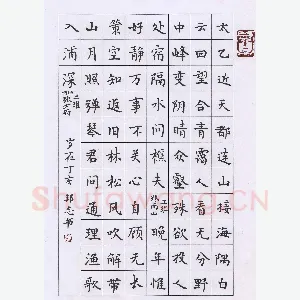 太乙近天都连山接海隅白
云回望合青霭入看无分野
中峰变阴晴众壑殊欲投人
处宿隔水问樵夫
王维
终南山
晚年惟
好静万事不关心自顾无长
策空知返旧林松风吹解带
山月照弹琴君问通理渔歌
入浦深
王维
酬张少府
岁在丁亥
Shufawang.CN